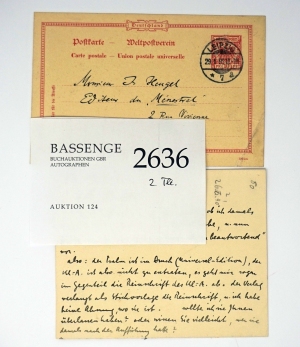 Deutschland
Postkarte – Weltpostverein
Carte postale – Union postale universelle
LEIPZIG
Monsieur J. Heugel
Editeur du Ménestrel
2 Rue Vivienne
BASSENGE
BUCHAUKTIONEN GBR
AUTOGRAPHEN
2636
2 Tle.
AUKTION 124
ob ich damals
vor.
also: der Psalm ist im Druck (Universal-Edition), der
ist also nicht zu entraten, es geht mir sogar
im Gegenteil die Reinschrift des ab. der Verlag
verlangt als Stichvorlage die Reinschrift, u. ich habe
keine Ahnung, wo sie ist. sollte ich sie Ihnen
überlassen haben? oder wissen Sie vielleicht, wer sie
damals nach der Aufführung hatte?